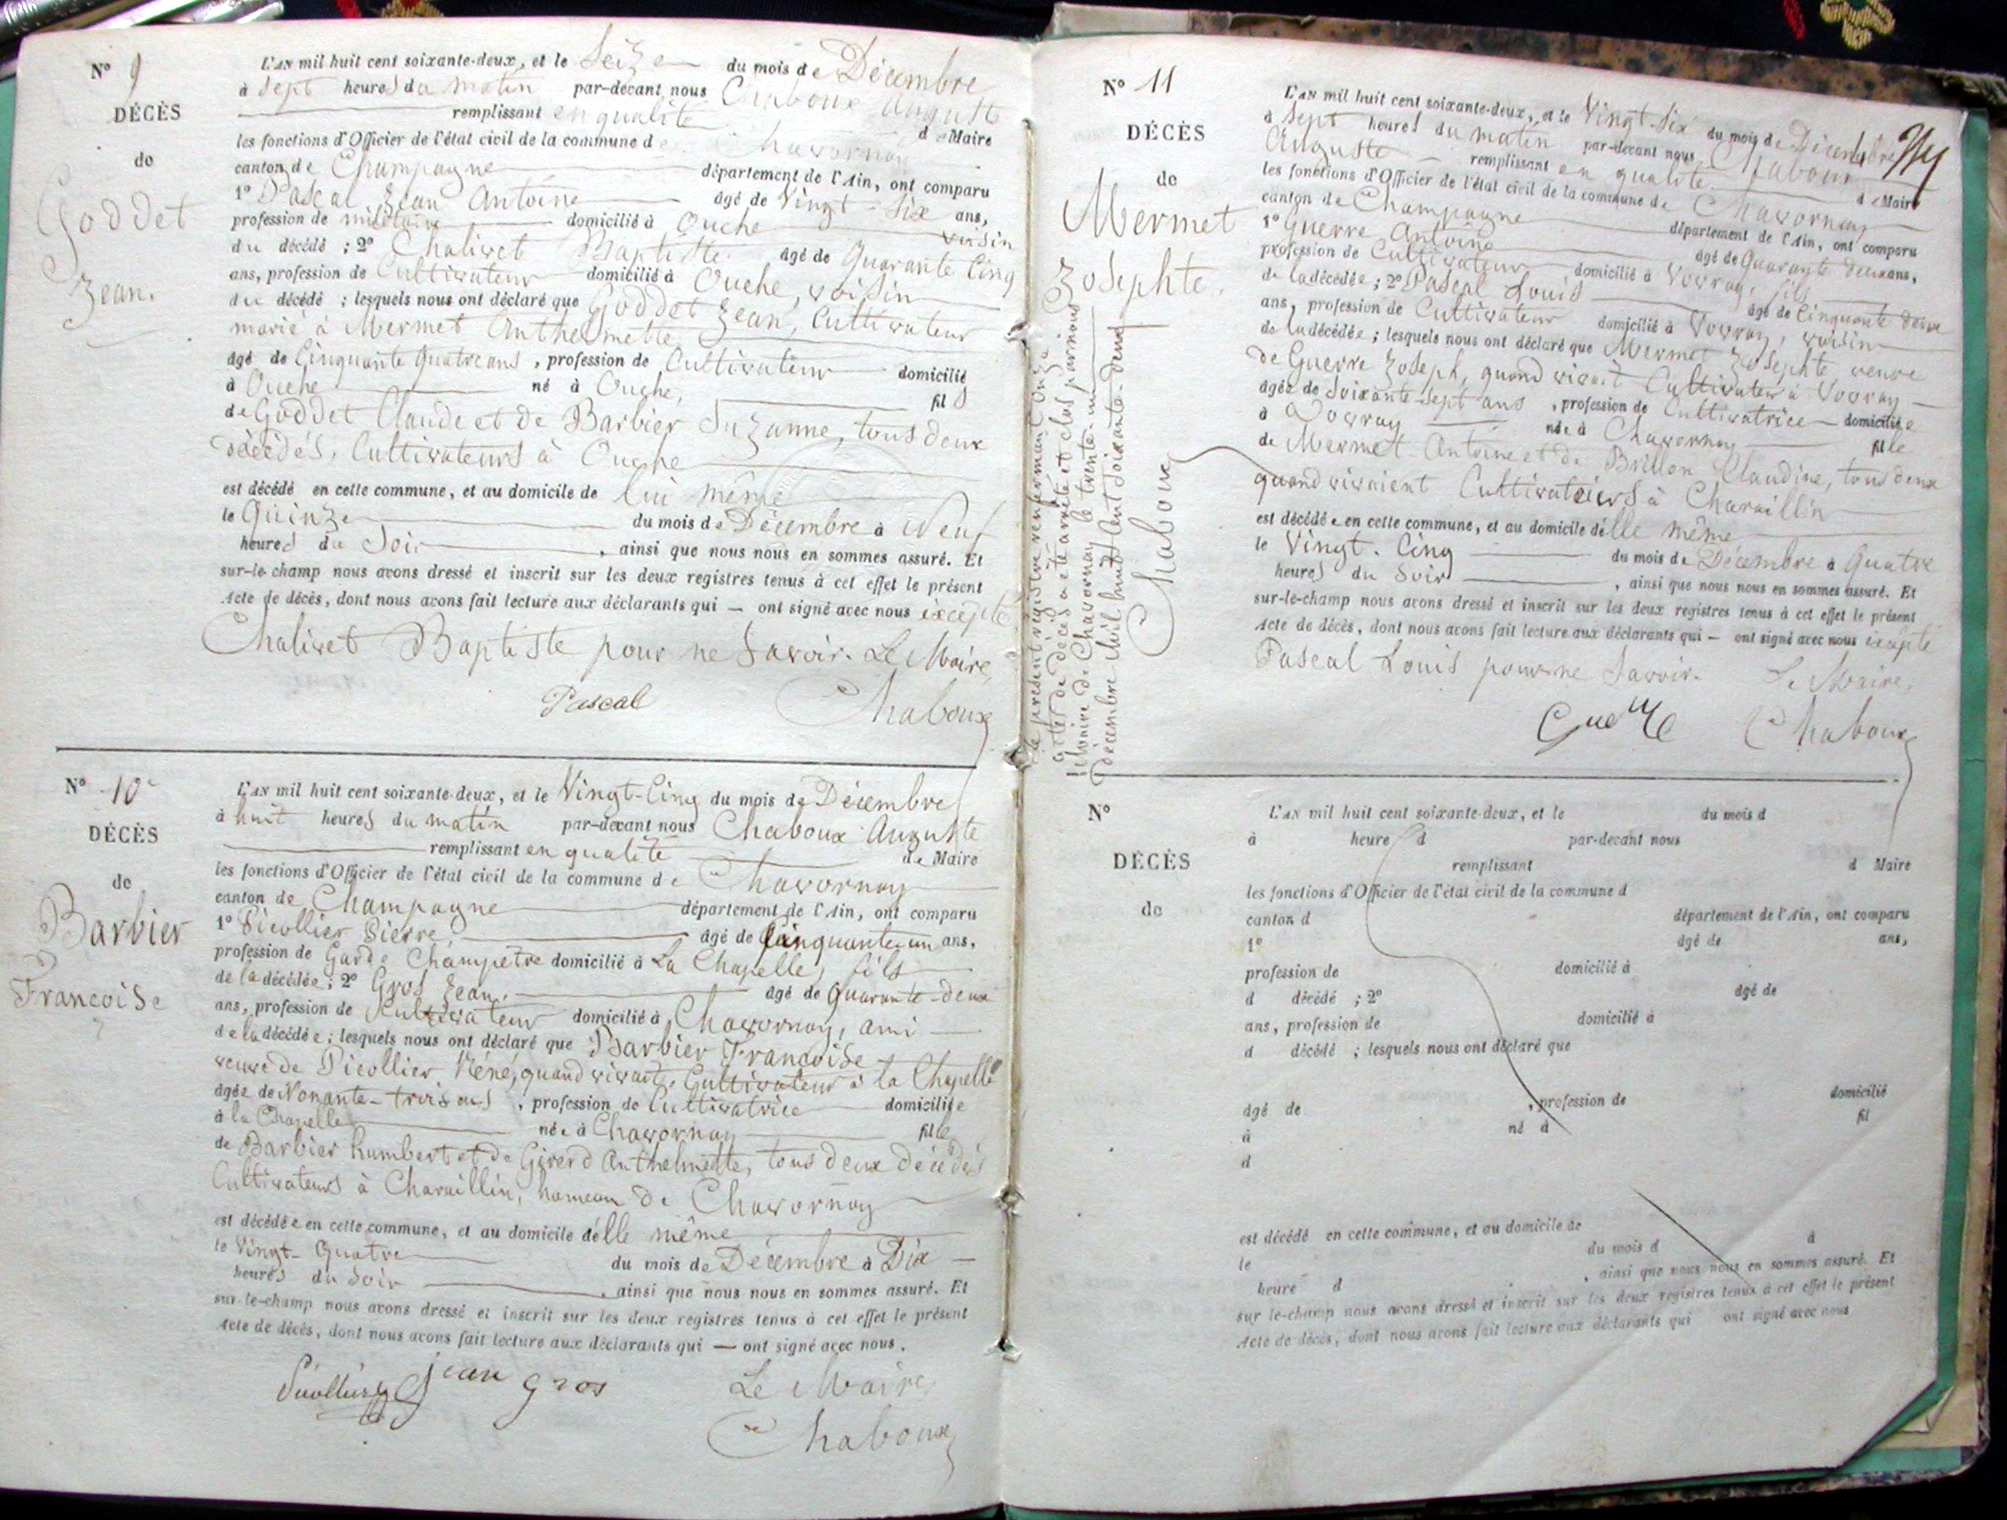 N° 9
DÉCÈS
de
Goddet
Jean.
L'AN mil huit cent soixante-deux, et le Seize du mois de Décembre
à Sept heures du matin par-devant nous Chaboux Auguste
remplissant en qualité de Maire
les fonctions d'Officier de l'état civil de la commune de Chavornay
canton de Champagne département de l'Ain, ont comparu
1° Pascal Jean Antoine âgé de Vingt-Six ans,
profession de militaire domicilié à Ouche voisin
du décédé ; 2° Chalivet Baptiste âgé de Quarante Cinq
ans, profession de Cultivateur domicilié à Ouche, voisin
du décédé ; lesquels nous ont déclaré que Goddet Jean, Cultivateur
marié à Mermet Anthelmette
âgé de Cinquante quatre ans, profession de Cultivateur domicilié
à Ouche né à Ouche, fils
de Goddet Claude et de Barbier Suzanne, tous deux
décédés, Cultivateurs à Ouche
est décédé en cette commune, et au domicile de lui même
le Quinze du mois de Décembre à Neuf
heures du Soir, ainsi que nous nous en sommes assuré. Et
sur-le-champ nous avons dressé et inscrit sur les deux registres tenus à cet effet le présent
Acte de décès, dont nous avons fait lecture aux déclarants qui — ont signé avec nous excepté
Chalivet Baptiste pour ne Savoir. Le Maire,
Pascal Chaboux
N° 10
DÉCÈS
de
Barbier
Francoise
L'AN mil huit cent soixante-deux, et le Vingt-Cinq du mois de Décembre
à huit heures du matin par-devant nous Chaboux Auguste
remplissant en qualité de Maire
les fonctions d'Officier de l'état civil de la commune de Chavornay
canton de Champagne département de l'Ain, ont comparu
1° Picollier Pierre âgé de Cinquante-un ans,
profession de Garde Champetre domicilié à La Chapelle, fils
de la décédée ; 2° Gros Jean, âgé de Quarante-deux
ans, profession de Cultivateur domicilié à Chavornay, ami
de la décédée ; lesquels nous ont déclaré que Barbier Francoise
veuve de Picollier Réné, quand vivait, Cultivateur à la Chapelle
âgée de Nonante-trois ans, profession de Cultivatrice domiciliée
à la Chapelle née à Chavornay fille
de Barbier humbert et de Girerd Anthelmette, tous deux décédés
Cultivateurs à Charaillin, hameau de Chavornay
est décédée en cette commune, et au domicile d'elle même
le Vingt-Quatre du mois de Décembre à Dix
heures du Soir, ainsi que nous nous en sommes assuré. Et
sur-le-champ nous avons dressé et inscrit sur les deux registres tenus à cet effet le présent
Acte de décès, dont nous avons fait lecture aux déclarants qui — ont signé avec nous.
Jean Gros Le Maire
Chaboux
Le présent registre renfermant Onze
actes de Décès a été arrêté et clos par nous
Maire de Chavornay le trente-un
Décembre Mil huit Cent Soixante-deux
Chaboux
N° 11
DÉCÈS
de
Mermet
Josephte.
L'AN mil huit cent soixante-deux, et le Vingt-Six du mois de Décembre
à Sept heures du matin par-devant nous Chaboux
Auguste remplissant en qualité de Maire
les fonctions d'Officier de l'état civil de la commune de Chavornay
canton de Champagne département de l'Ain, ont comparu
1° Guerre Antoine âgé de Quarante deux ans,
profession de Cultivateur domicilié à Vovray, fils
de la décédée ; 2° Pascal Louis âgé de Cinquante deux
ans, profession de Cultivateur domicilié à Vovray, voisin
de la décédée ; lesquels nous ont déclaré que Mermet Josephte, veuve
de Guerre Joseph, quand vivait Cultivateur à Vovray
âgée de Soixante-Sept ans, profession de Cultivatrice domiciliée
à Vovray née à Chavornay fille
de Mermet Antoine et de Brillon Claudine, tous deux
quand vivaient Cultivateurs à Charaillin
est décédée en cette commune, et au domicile d'elle même
le Vingt-Cinq du mois de Décembre à Quatre
heures du Soir, ainsi que nous nous en sommes assuré. Et
sur-le-champ nous avons dressé et inscrit sur les deux registres tenus à cet effet le présent
Acte de décès, dont nous avons fait lecture aux déclarants qui — ont signé avec nous excepté
Pascal Louis pour ne Savoir. Le Maire,
Guerre Chaboux
N°
DÉCÈS
de
L'AN mil huit cent soixante-deux, et le du mois d
à heure d par-devant nous
remplissant d Maire
les fonctions d'Officier de l'état civil de la commune d
canton d département de l'Ain, ont comparu
1° âgé de ans,
profession de domicilié à
d décédé ; 2° âgé de
ans, profession de domicilié à
d décédé ; lesquels nous ont déclaré que
âgé de , profession de domicilié
à né à fil
d
est décédé en cette commune, et au domicile de
le du mois d à
heure d , ainsi que nous nous en sommes assuré. Et
sur-le-champ nous avons dressé et inscrit sur les deux registres tenus à cet effet le présent
Acte de décès, dont nous avons fait lecture aux déclarants qui ont signé avec nous